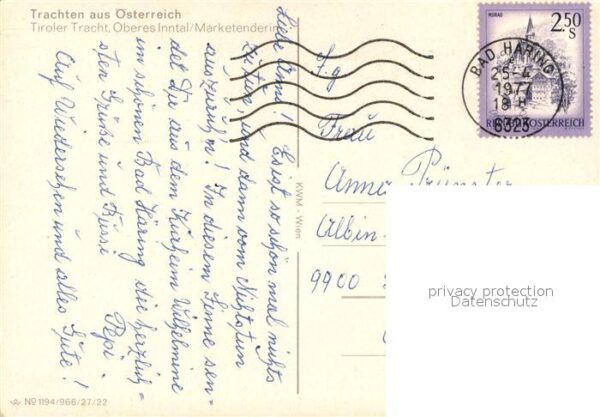 Trachten aus Österreich
Tiroler Tracht, Oberes Inntal/Marketenderin
Liebe Anni! Es ist so schön mal nichts
zu tun und dann vom Nichtstun
auszuruhen! In diesem Sinne sen-
det Dir aus dem Kurheim Wilhelmine
im schönen Bad Häring die herzlich-
sten Grüße und Bussi
Pepi
Auf Wiedersehen und alles Gute!
№ 1194/966/27/22
KWM - Wien
MURAU
2.50
S
REPUBLIK ÖSTERREICH
BAD HÄRING
25.-4.
1977
18 H
6323
Frau
Anna Prünster
Albin-
9900
privacy protection
Datenschutz